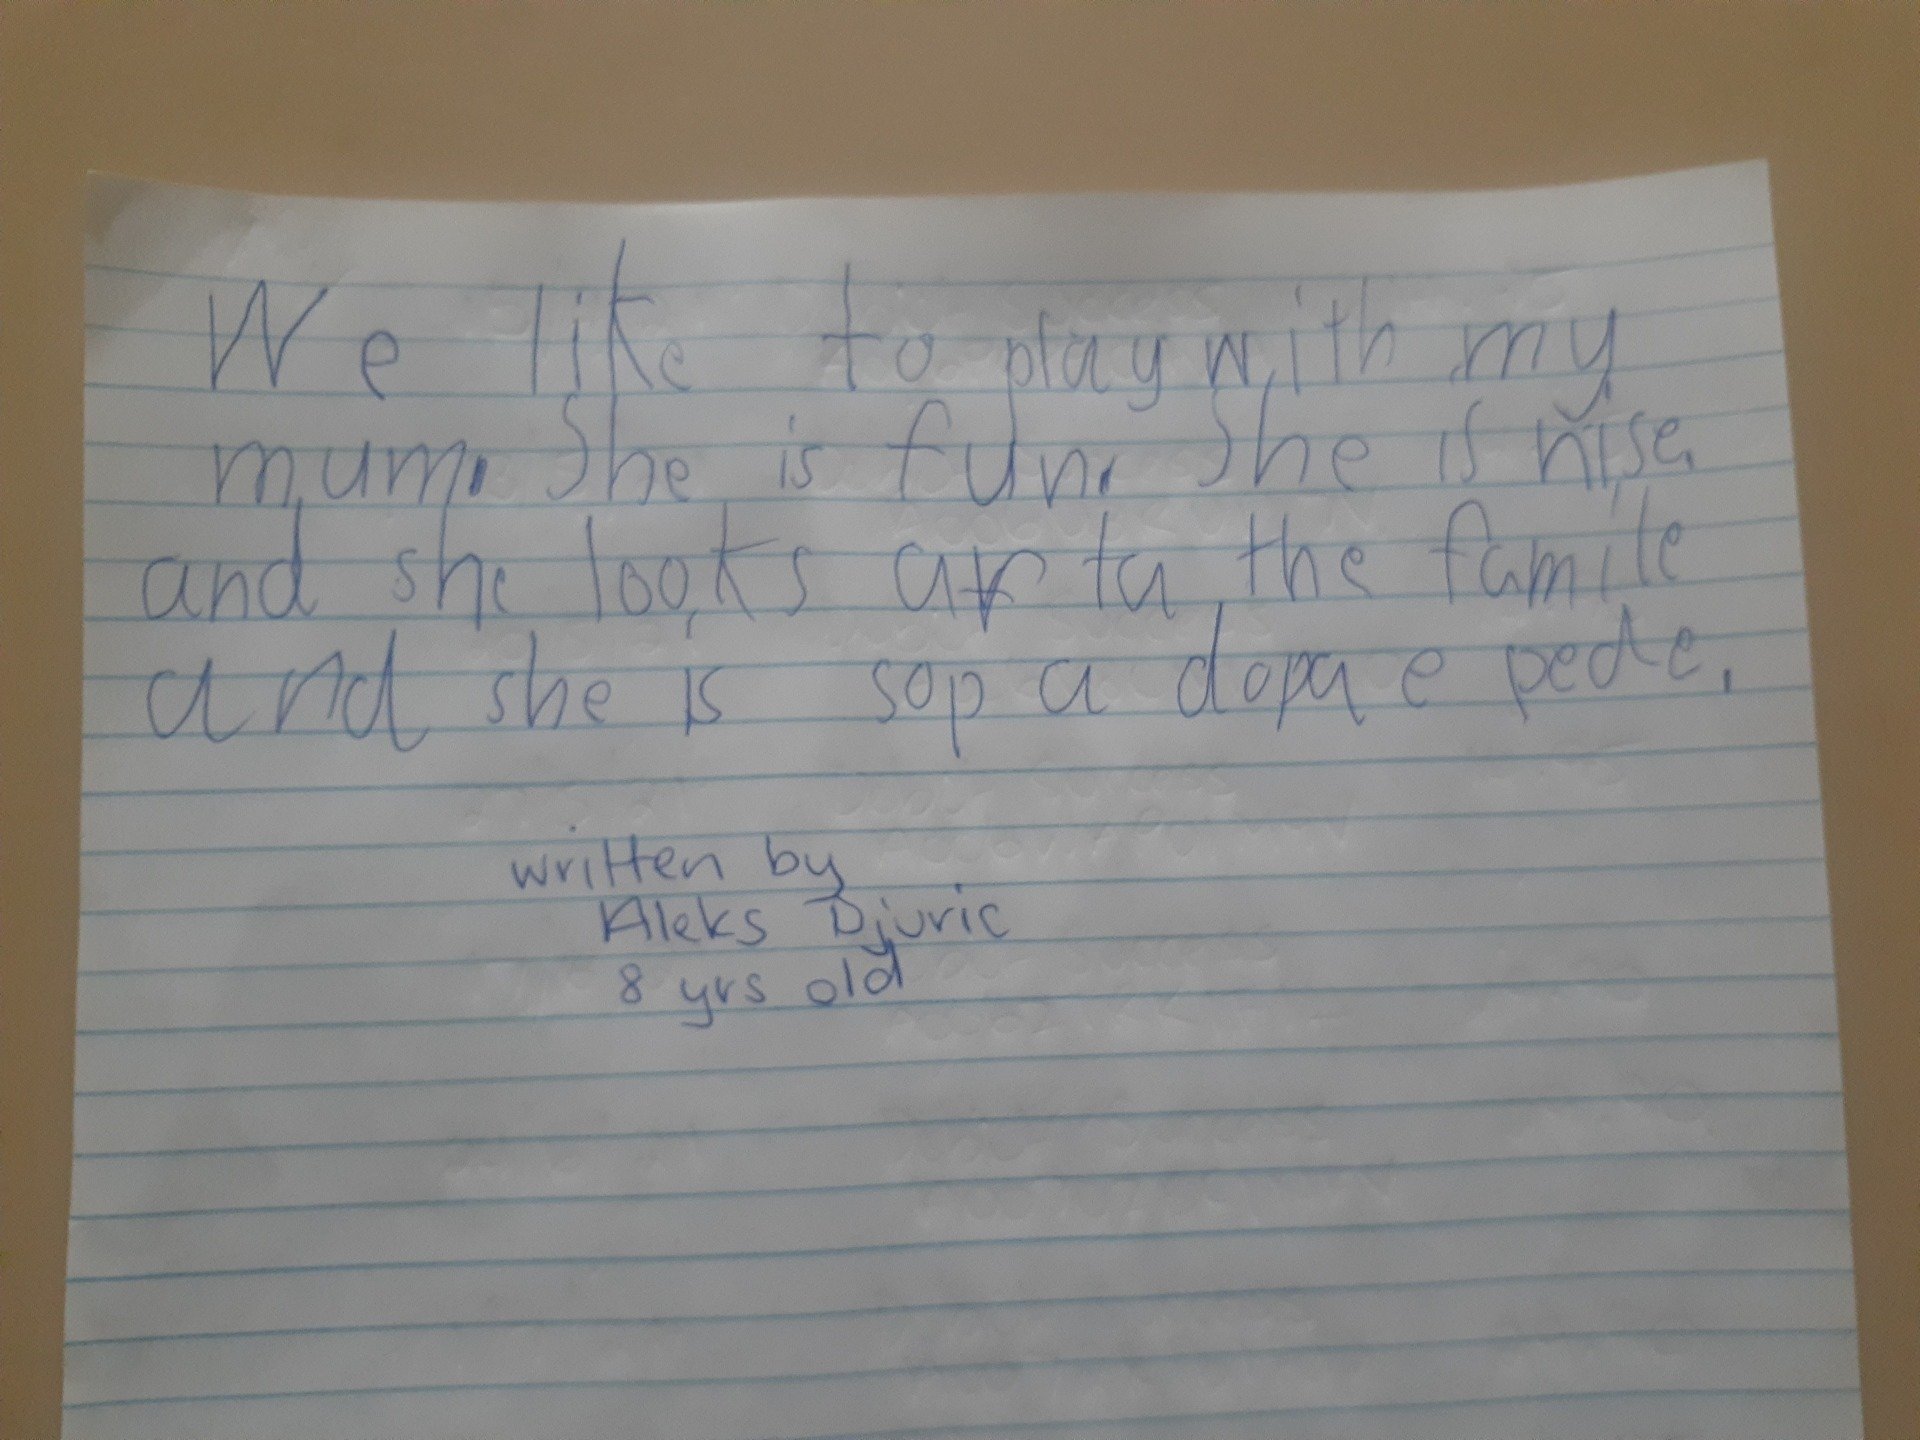 We like to play with my
mum. She is fun. She is nise
and she looks ar ta the famile
and she is sop a dopa e pede.
written by
Aleks Djuric
8 yrs old